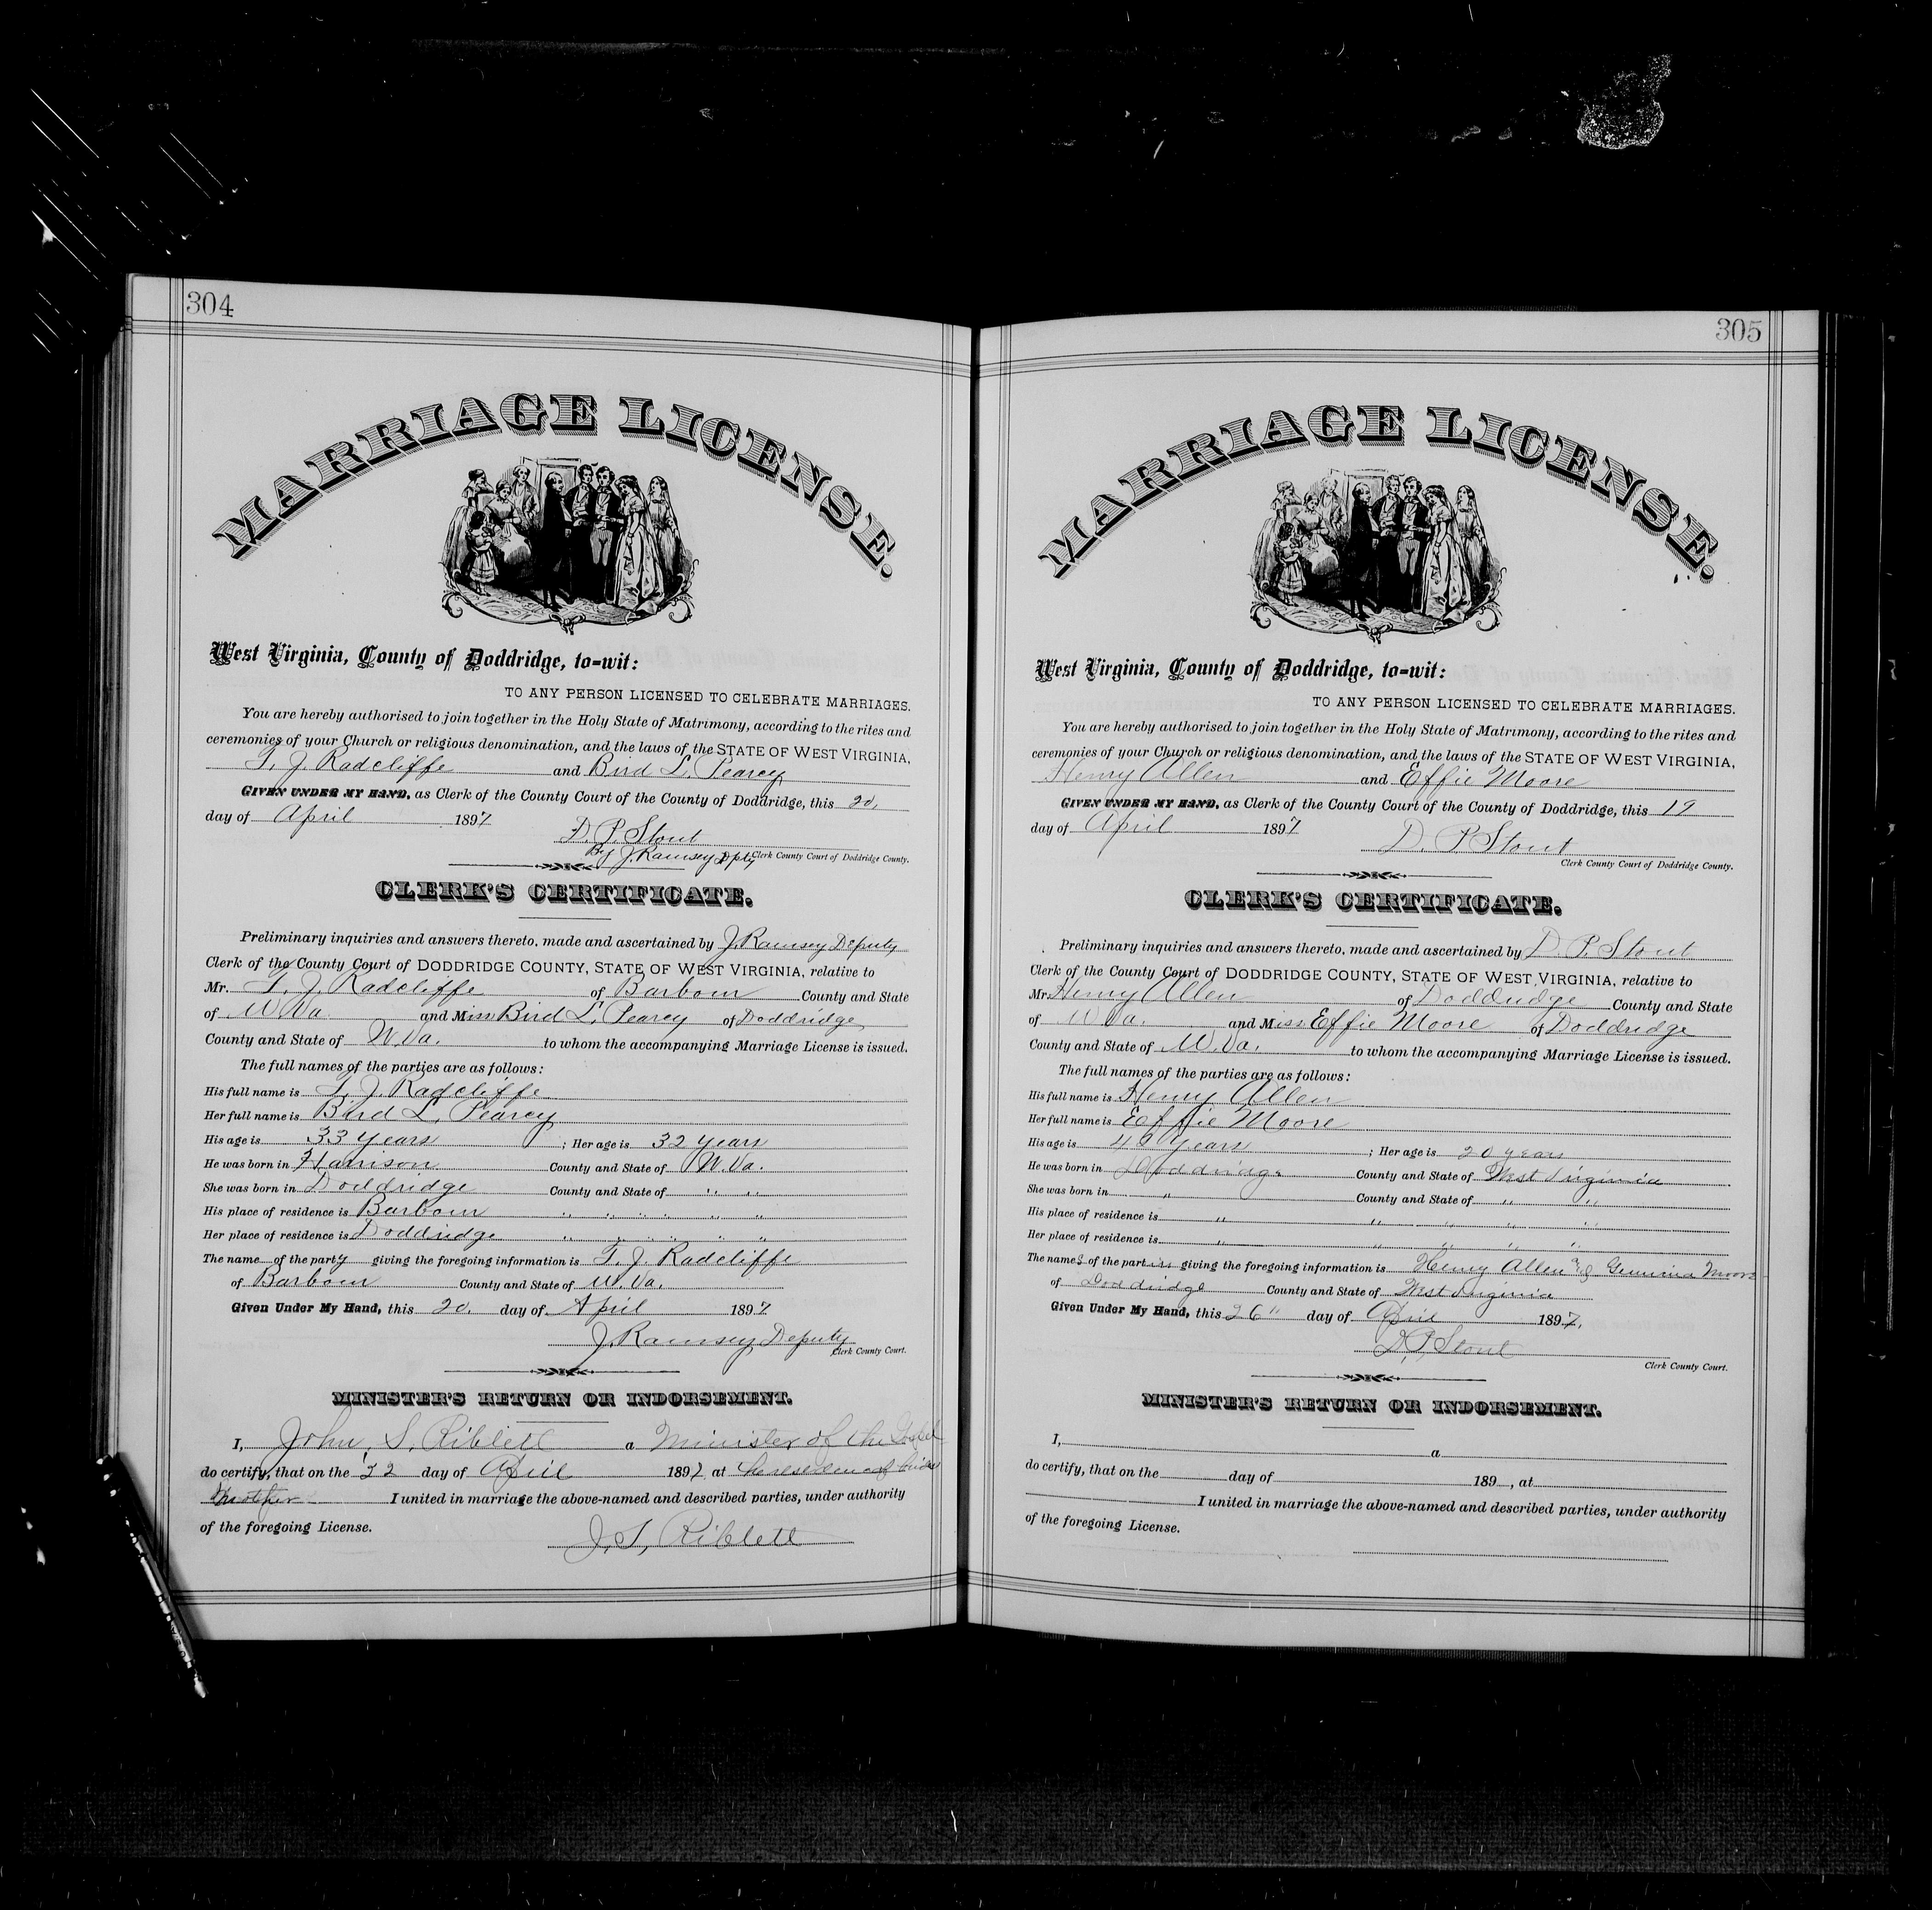 304
MARRIAGE LICENSE.
West Virginia, County of Doddridge, to=wit:
TO ANY PERSON LICENSED TO CELEBRATE MARRIAGES.
You are hereby authorised to join together in the Holy State of Matrimony, according to the rites and
ceremonies of your Church or religious denomination, and the laws of the STATE OF WEST VIRGINIA,
T. J. Radcliffe and Bird L. Pearcy
GIVEN UNDER MY HAND, as Clerk of the County Court of the County of Doddridge, this 20,
day of April 1897
D. P. Stout
By J. Ramsey Dpty Clerk County Court of Doddridge County.
CLERK'S CERTIFICATE.
Preliminary inquiries and answers thereto, made and ascertained by J. Ramsey Deputy
Clerk of the County Court of DODDRIDGE COUNTY, STATE OF WEST VIRGINIA, relative to
Mr. T. J. Radcliffe of Barbour County and State
of W Va. and Miss Bird L. Pearcy of Doddridge
County and State of W. Va. to whom the accompanying Marriage License is issued.
The full names of the parties are as follows:
His full name is T. J. Radcliffe
Her full name is Bird L. Pearcy
His age is 33 years ; Her age is 32 years
He was born in Harrison County and State of W. Va.
She was born in Doddridge County and State of " "
His place of residence is Barbour " " " " " "
Her place of residence is Doddridge " " " " " "
The name of the party giving the foregoing information is T. J. Radcliffe
of Barbour County and State of W. Va.
Given Under My Hand, this 20. day of April 1897
J. Ramsey Deputy
Clerk County Court.
MINISTER'S RETURN OR INDORSEMENT.
I, John S. Riblett a Minister of the Gospel
do certify, that on the 22 day of April 1897 at the residence of brides
Mother I united in marriage the above-named and described parties, under authority
of the foregoing License.
J. S. Riblett
305
MARRIAGE LICENSE.
West Virginia, County of Doddridge, to=wit:
TO ANY PERSON LICENSED TO CELEBRATE MARRIAGES.
You are hereby authorised to join together in the Holy State of Matrimony, according to the rites and
ceremonies of your Church or religious denomination, and the laws of the STATE OF WEST VIRGINIA,
Henry Allen and Effie Moore
GIVEN UNDER MY HAND, as Clerk of the County Court of the County of Doddridge, this
day of April 1897
D. P. Stout
Clerk County Court of Doddridge County.
CLERK'S CERTIFICATE.
Preliminary inquiries and answers thereto, made and ascertained by D. P. Stout
Clerk of the County Court of DODDRIDGE COUNTY, STATE OF WEST VIRGINIA, relative to
Mr. Henry Allen of Doddridge County and State
of W Va. and Miss Effie Moore of Doddridge
County and State of W. Va. to whom the accompanying Marriage License is issued.
The full names of the parties are as follows:
His full name is Henry Allen
Her full name is Effie Moore
His age is years ; Her age is 20 years
He was born in Doddridge County and State of West Virginia
She was born in " County and State of " "
His place of residence is " " " " "
Her place of residence is " " " " "
The names of the parties giving the foregoing information is Henry Allen & Moore
of Doddridge County and State of West Virginia
Given Under My Hand, this 26" day of April 1897.
D. P. Stout
Clerk County Court.
MINISTER'S RETURN OR INDORSEMENT.
I, a
do certify, that on the day of 189 , at
I united in marriage the above-named and described parties, under authority
of the foregoing License.